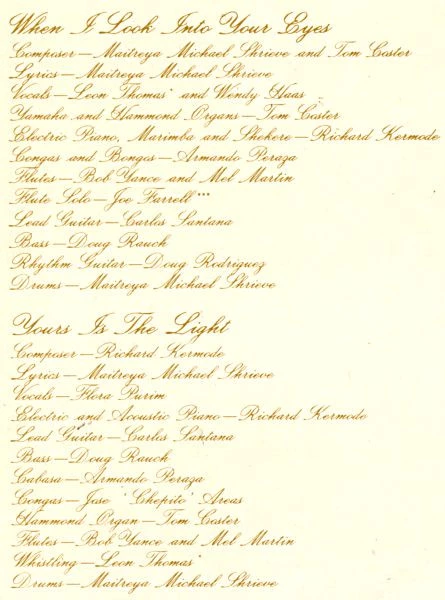 When I Look Into Your Eyes
Composer—Maitreya Michael Shrieve and Tom Coster
Lyrics—Maitreya Michael Shrieve
Vocals—Leon Thomas* and Wendy Haas
Yamaha and Hammond Organs—Tom Coster
Electric Piano, Marimba and Shekere—Richard Kermode
Congas and Bongos—Armando Peraza
Flutes—Bob Yance and Mel Martin
Flute Solo—Joe Farrell***
Lead Guitar—Carlos Santana
Bass—Doug Rauch
Rhythm Guitar—Doug Rodriguez
Drums—Maitreya Michael Shrieve
Yours Is The Light
Composer—Richard Kermode
Lyrics—Maitreya Michael Shrieve
Vocals—Flora Purim
Electric and Acoustic Piano—Richard Kermode
Lead Guitar—Carlos Santana
Bass—Doug Rauch
Cabasa—Armando Peraza
Congas—Jose 'Chepito' Areas
Hammond Organ—Tom Coster
Flutes—Bob Yance and Mel Martin
Whistling—Leon Thomas*
Drums—Maitreya Michael Shrieve